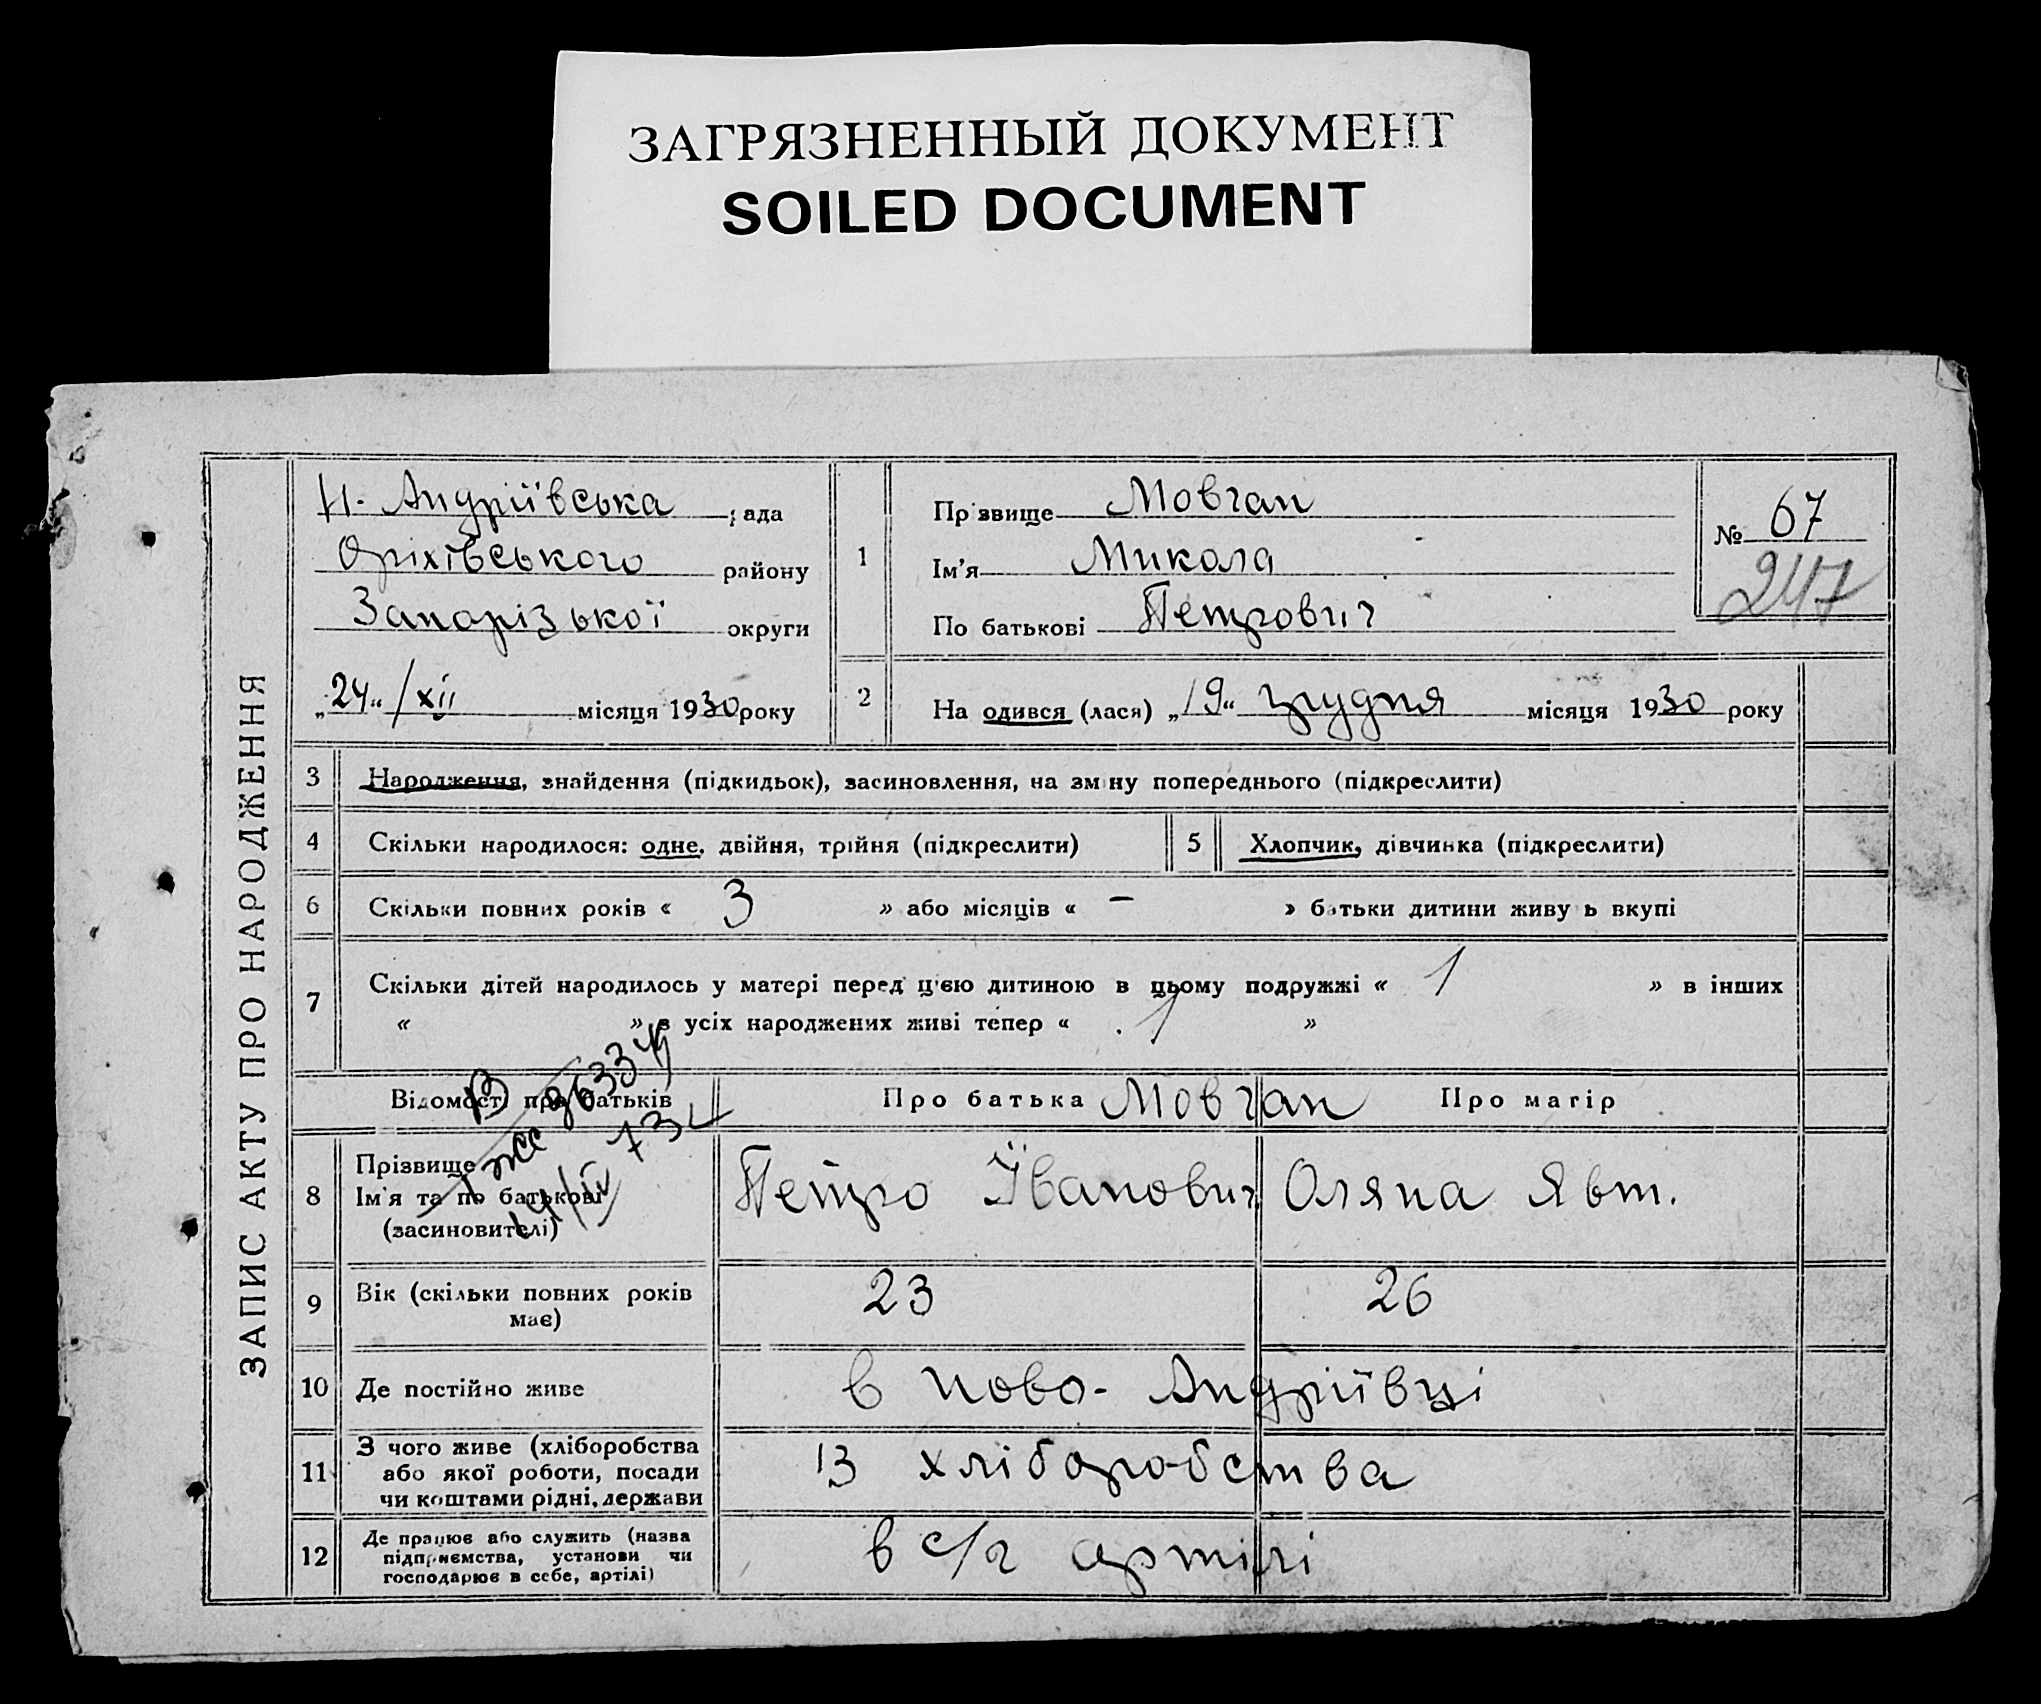 ЗАГРЯЗНЕННЫЙ ДОКУМЕНТ
SOILED DOCUMENT
ЗАПИС АКТУ ПРО НАРОДЖЕННЯ
Н. Андріївська рада
Оріхівського району
Запорізької округи
„24“ /XII місяця 1930 року
1
Прізвище Мовчан
Ім'я Микола
По батькові Петрович
№ 67
247
2
На одився (лася) „19“ грудня місяця 1930 року
3 Народження, знайдення (підкидьок), засиновлення, на зміну попереднього (підкреслити)
4 Скільки народилося: одне, двійня, трійня (підкреслити)
5 Хлопчик, дівчинка (підкреслити)
6 Скільки повних років « 3 » або місяців « — » батьки дитини живуть вкупі
7 Скільки дітей народилось у матері перед цією дитиною в цьому подружжі « 1 » в інших
« » з усіх народжених живі тепер « 1 »
Відомості про батьків
Про батька Мовчан Про матір
8 Прізвище
Ім'я та по батькові
(засиновителі)
Петро Іванович Оляна Явт.
9 Вік (скільки повних років
має)
23 26
10 Де постійно живе в Ново-Андріївці
11 З чого живе (хліборобства
або якої роботи, посади
чи коштами рідні, держави
Із хліборобства
12 Де працює або служить (назва
підприємства, установи чи
господарює в себе, артілі)
в с/г артілі